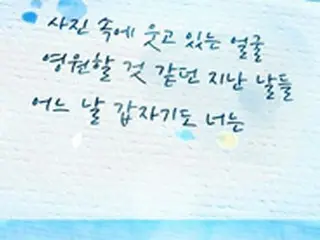 사진 속에 웃고 있는 얼굴
영원할 것 같던 지난 날들
어느 날 갑자기도 너는